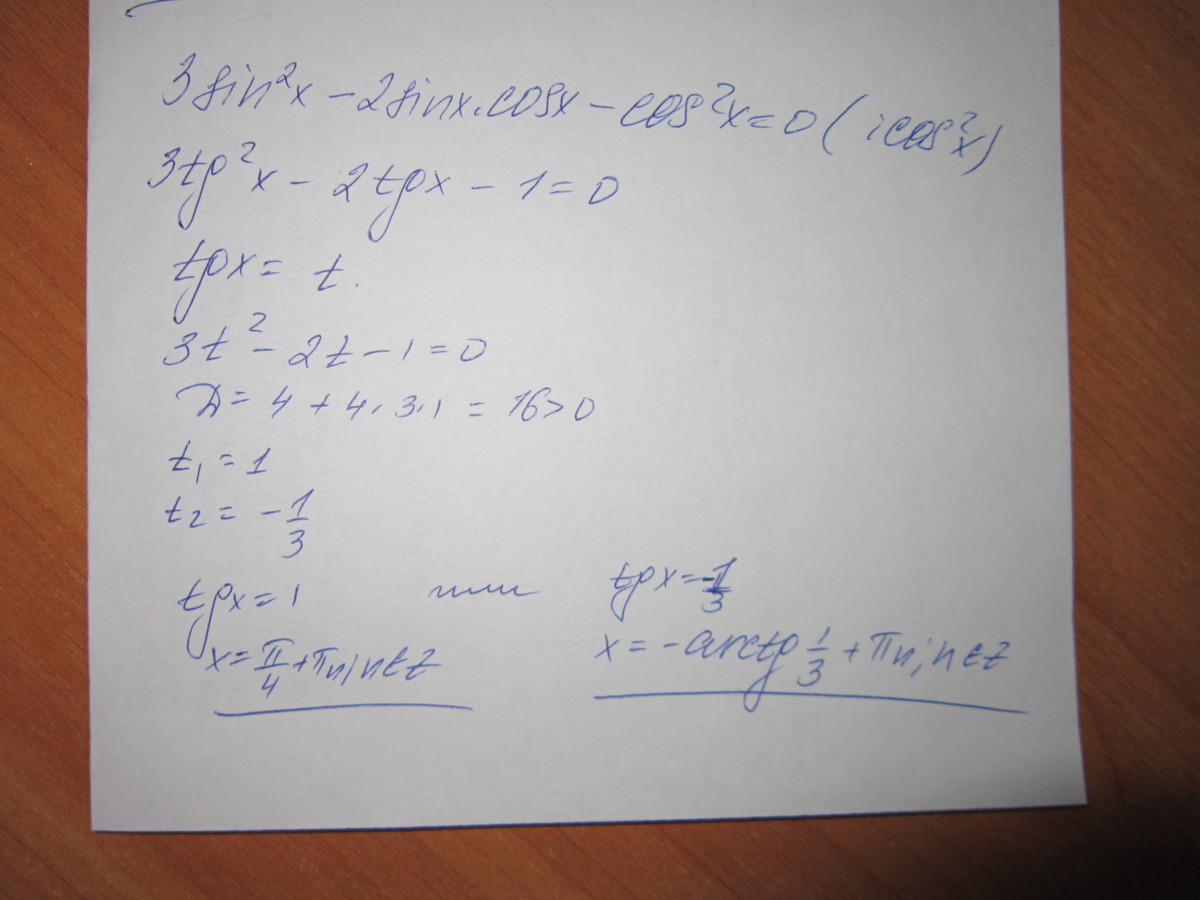 3sin²x - 2sinx·cosx - cos²x = 0 (:cos²x)
3tg²x - 2tgx - 1 = 0
tgx = t.
3t² - 2t - 1 = 0
D = 4 + 4·3·1 = 16 > 0
t₁ = 1
t₂ = -1/3
tgx = 1 или tgx = -1/3
x = π/4 + πn; n∈Z x = -arctg 1/3 + πn; n∈Z